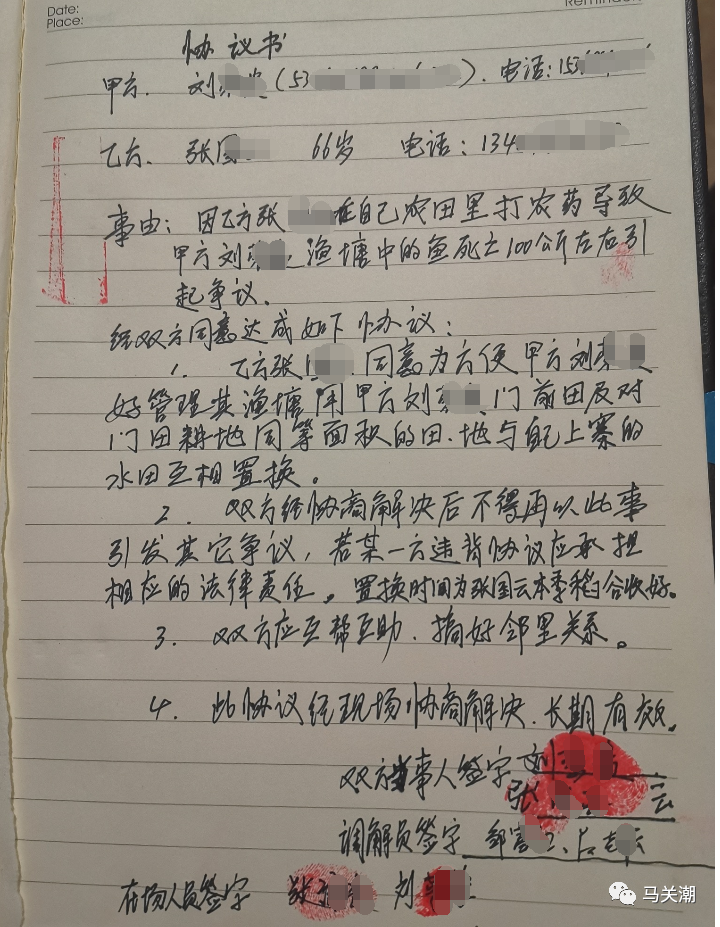 Date:
Place:
协议书
甲方. 刘(53). 电话:153
乙方. 张国 66岁 电话:134
事由:因乙方张在自己农田里打农药导致
甲方刘渔塘中的鱼死亡100公斤左右引
起争议.
经双方同意达成如下协议:
1. 乙方张同意为方便甲方刘
好管理其渔塘用甲方刘门前田及对
门田耕地同等面积的田.地与自己上寨的
水田互相置换。
2. 双方经协商解决后不得再以此事
引发其它争议,若某一方违背协议应承担
相应的法律责任。置换时间为张国云本季稻谷收好。
3. 双方应互帮互助.搞好邻里关系。
4. 此协议经现场协商解决.长期有效。
双方当事人签字 刘
张 云
调解员签字 邹 、 云
在场人员签字 张 刘
马关潮